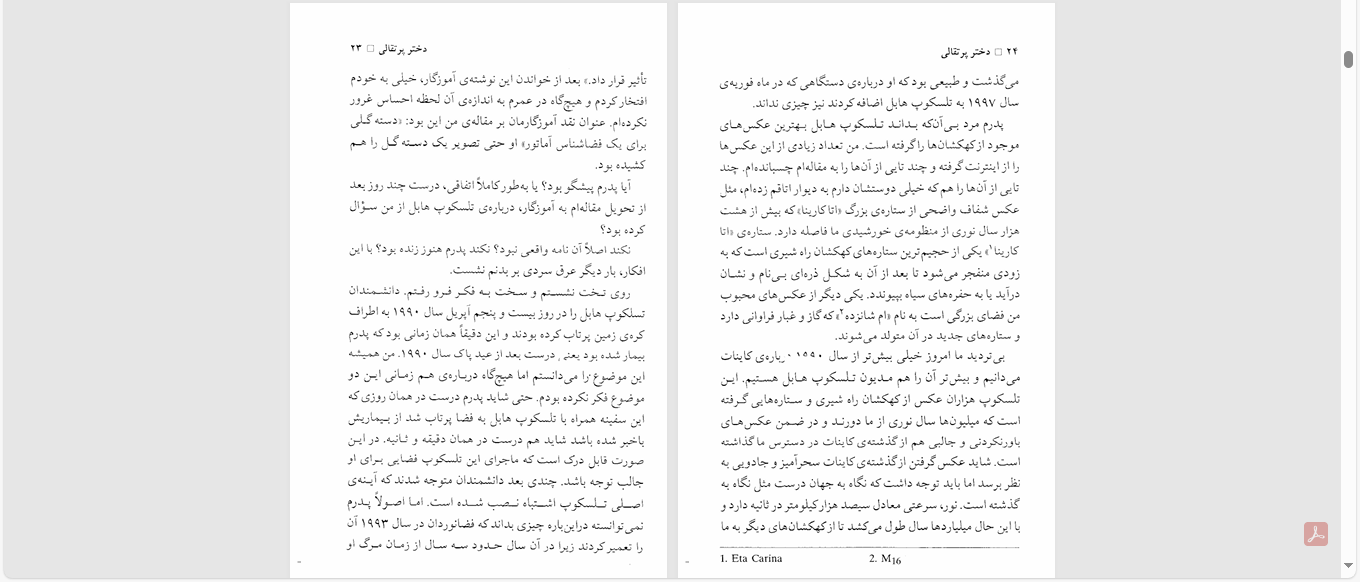 دختر پرتقالی □ ۲۳
تأثیر قرار داد.» بعد از خواندن این نوشته‌ی آموزگار، خیلی به خودم
افتخار کردم و هیچ‌گاه در عمرم به اندازه‌ی آن لحظه احساس غرور
نکرده‌ام. عنوان نقد آموزگارمان بر مقاله‌ی من این بود: «دسته گلی
برای یک فضاشناس آماتور» او حتی تصویر یک دسته گل را هم
کشیده بود.
آیا پدرم پیشگو بود؟ یا به‌طور کاملاً اتفاقی، درست چند روز بعد
از تحویل مقاله‌ام به آموزگار، درباره‌ی تلسکوپ هابل از من سؤال
کرده بود؟
نکند اصلاً آن نامه واقعی نبود؟ نکند پدرم هنوز زنده بود؟ با این
افکار، بار دیگر عرق سردی بر بدنم نشست.
روی تخت نشستم و سخت به فکر فرو رفتم. دانشمندان
تسلکوپ هابل را در روز بیست و پنجم آپریل سال ۱۹۹۰ به اطراف
کره‌ی زمین پرتاب کرده بودند و این دقیقاً همان زمانی بود که پدرم
بیمار شده بود یعنی درست بعد از عید پاک سال ۱۹۹۰. من همیشه
این موضوع را می‌دانستم اما هیچ‌گاه درباره‌ی هم زمانی این دو
موضوع فکر نکرده بودم. حتی شاید پدرم درست در همان روزی که
این سفینه همراه با تلسکوپ هابل به فضا پرتاب شد از بیماریش
باخبر شده باشد شاید هم درست در همان دقیقه و ثانیه. در این
صورت قابل درک است که ماجرای این تلسکوپ فضایی برای او
جالب توجه باشد. چندی بعد دانشمندان متوجه شدند که آینه‌ی
اصلی تلسکوپ اشتباه نصب شده است. اما اصولاً پدرم
نمی‌توانسته دراین‌باره چیزی بداند که فضانوردان در سال ۱۹۹۳ آن
را تعمیر کردند زیرا در آن سال حدود سه سال از زمان مرگ او
۲۴ □ دختر پرتقالی
می‌گذشت و طبیعی بود که او درباره‌ی دستگاهی که در ماه فوریه‌ی
سال ۱۹۹۷ به تلسکوپ هابل اضافه کردند نیز چیزی نداند.
پدرم مرد بی‌آن‌که بداند تلسکوپ هابل بهترین عکس‌های
موجود از کهکشان‌ها را گرفته است. من تعداد زیادی از این عکس‌ها
را از اینترنت گرفته و چند تایی از آن‌ها را به مقاله‌ام چسبانده‌ام. چند
تایی از آن‌ها را هم که خیلی دوستشان دارم به دیوار اتاقم زده‌ام، مثل
عکس شفاف واضحی از ستاره‌ی بزرگ «اتا کارینا» که بیش از هشت
هزار سال نوری از منظومه‌ی خورشیدی ما فاصله دارد. ستاره‌ی «اتا
کارینا۱» یکی از حجیم‌ترین ستاره‌های کهکشان راه شیری است که به
زودی منفجر می‌شود تا بعد از آن به شکل ذره‌ای بی‌نام و نشان
درآید یا به حفره‌های سیاه بپیوندد. یکی دیگر از عکس‌های محبوب
من فضای بزرگی است به نام «ام شانزده۲» که گاز و غبار فراوانی دارد
و ستاره‌های جدید در آن متولد می‌شوند.
بی‌تردید ما امروز خیلی بیش‌تر از سال ۱۹۹۰ درباره‌ی کاینات
می‌دانیم و بیش‌تر آن را هم مدیون تلسکوپ هابل هستیم. این
تلسکوپ هزاران عکس از کهکشان راه شیری و ستاره‌هایی گرفته
است که میلیون‌ها سال نوری از ما دورند و در ضمن عکس‌های
باورنکردنی و جالبی هم از گذشته‌ی کاینات در دسترس ما گذاشته
است. شاید عکس گرفتن از گذشته‌ی کاینات سحرآمیز و جادویی به
نظر برسد اما باید توجه داشت که نگاه به جهان درست مثل نگاه به
گذشته است. نور، سرعتی معادل سیصد هزار کیلومتر در ثانیه دارد و
با این حال میلیاردها سال طول می‌کشد تا از کهکشان‌های دیگر به ما
1. Eta Carina 2. M16